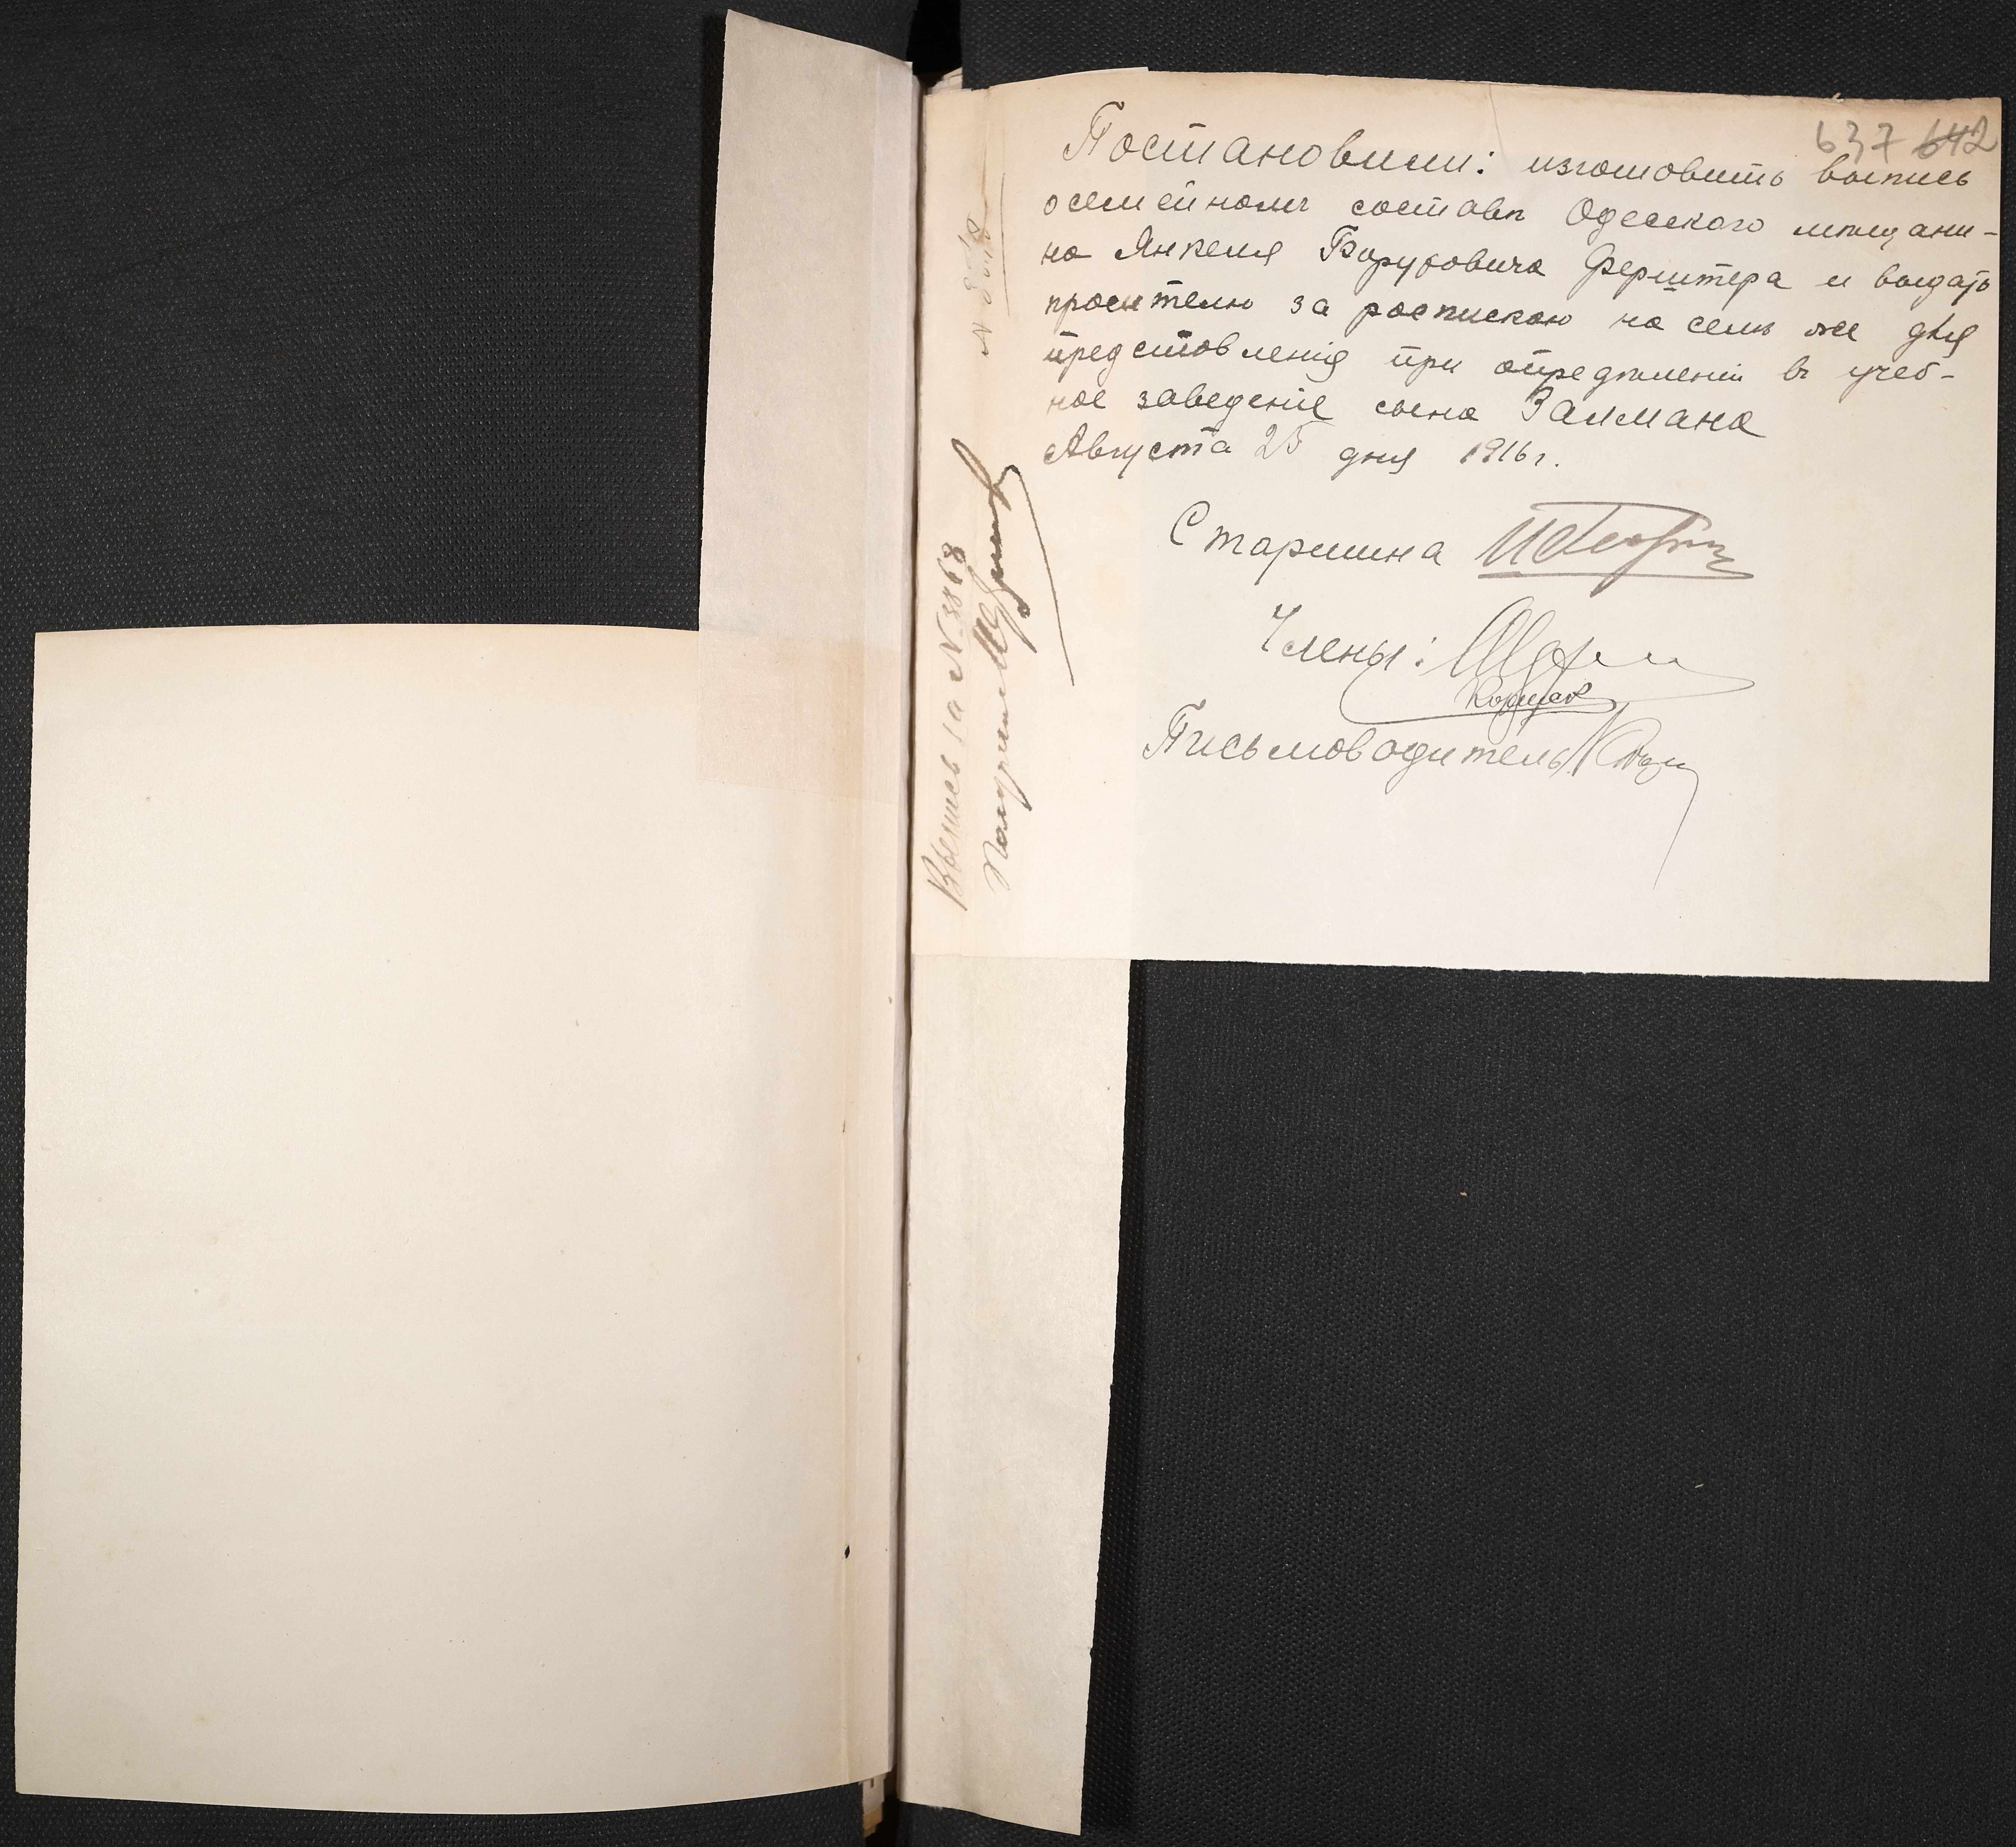 637 642
Постановили: изготовить выпись
о семейномъ составѣ Одесского мѣщани-
на Янкеля Боруховича Ферштера и выдать
просителю за роспискою на семъ же для
представленія при опредѣленіи въ учеб-
ное заведеніе сына Залмана
Августа 25 дня 1916 г.
Старшина
Члены:
Письмоводитель
Выпись за № 3868
Получилъ
№